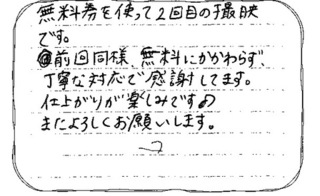 無料券を使って2回目の撮影
です。
前回同様、無料にかかわらず、
丁寧な対応で感謝してます。
仕上がりが楽しみです
またよろしくお願いします。